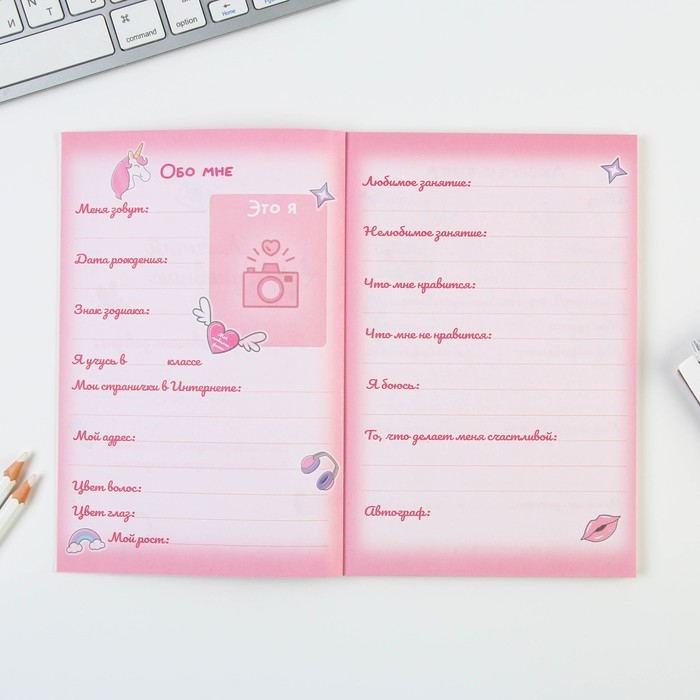 И Т
⌘
command
option
Home
Обо мне
Меня зовут:
Это я
Дата рождения:
Знак зодиака:
Я учусь в классе
Мои странички в Интернете:
Мой адрес:
Цвет волос:
Цвет глаз:
Мой рост:
Любимое занятие:
Нелюбимое занятие:
Что мне нравится:
Что мне не нравится:
Я боюсь:
То, что делает меня счастливой:
Автограф: